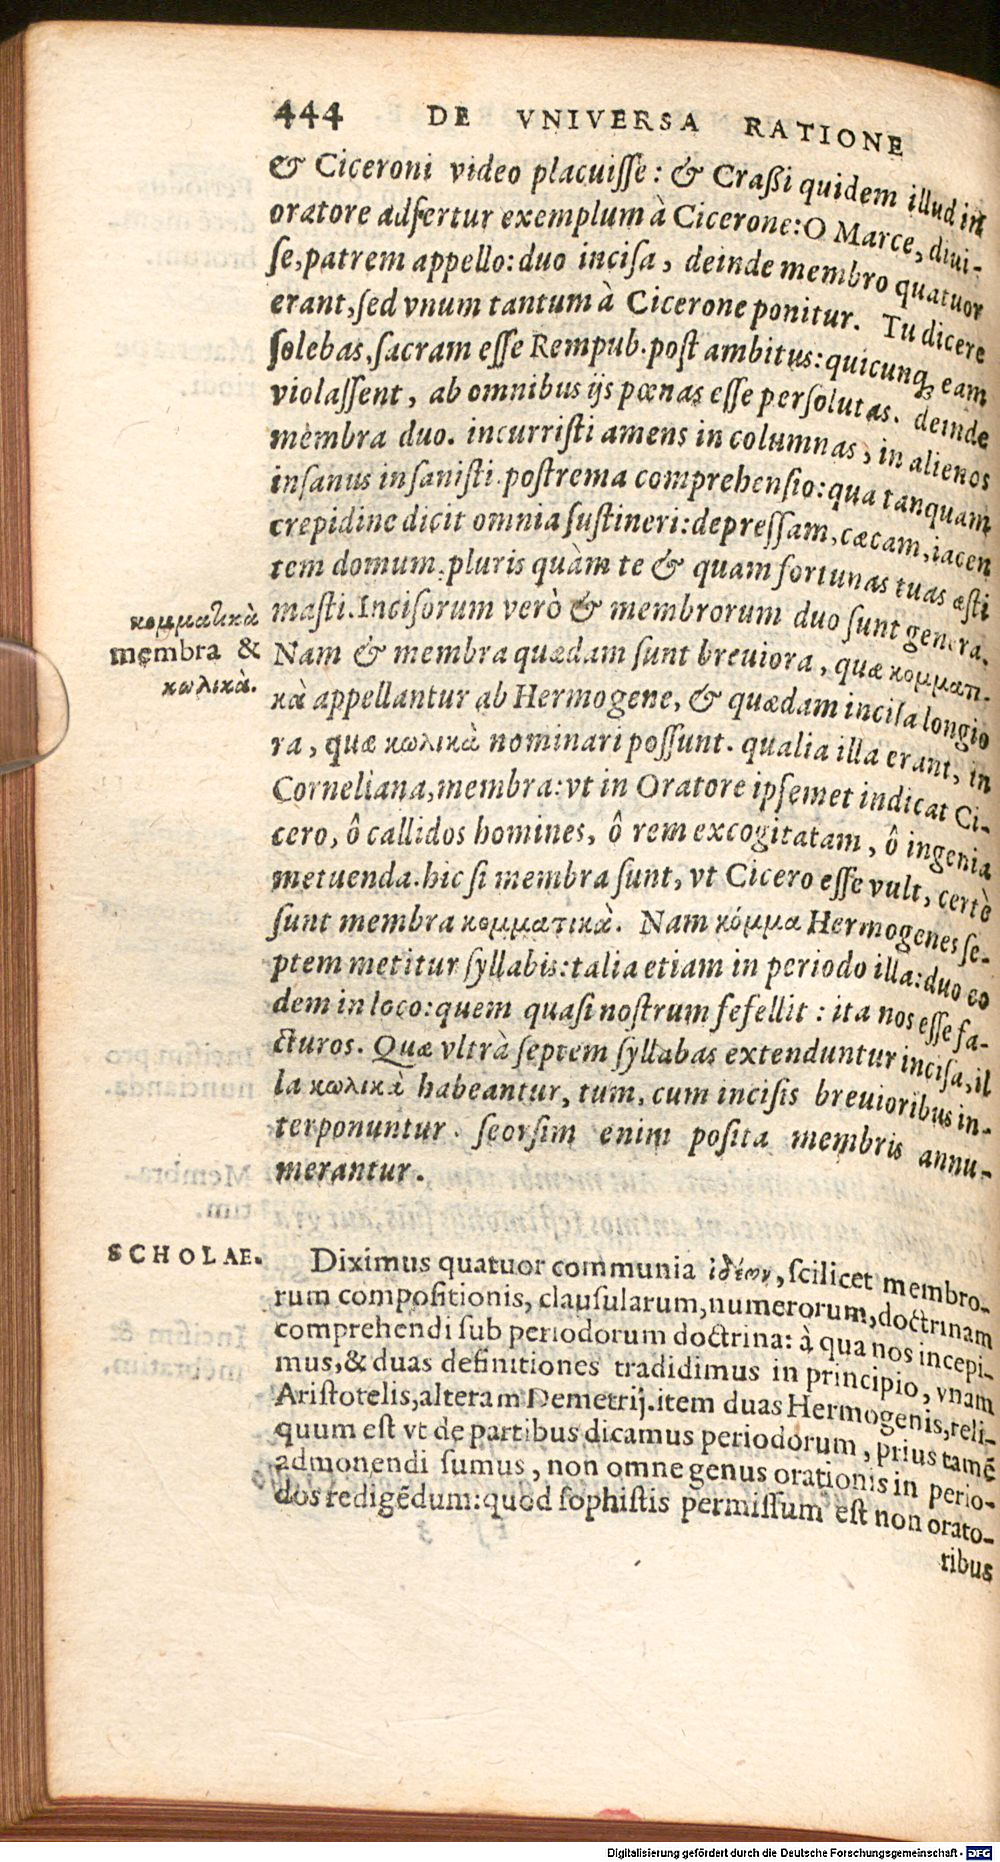 444 DE VNIVERSA RATIONE
& Ciceroni video placuisse: & Craßi quidem illud in
oratore adfertur exemplum à Cicerone: O Marce, diui-
se, patrem appello: duo incisa, deinde membro quatuor
erant, sed vnum tantum à Cicerone ponitur. Tu dicere
solebas, sacram esse Rempub. post ambitus: quicunq; eam
violassent, ab omnibus ijs pœnas esse persolutas. deinde
membra duo. incurristi amens in columnas, in alienos
insanus insanisti. postrema comprehensio: qua tanquam
crepidine dicit omnia sustineri: depressam, cæcam, iacen
tem domum. pluris quàm te & quam fortunas tuas æsti
masti. Incisorum verò & membrorum duo sunt genera.
κομματικὰ
membra &
κωλικὰ.
Nam & membra quædam sunt breuiora, quæ κομματι-
κὰ appellantur ab Hermogene, & quædam incisa longio
ra, quæ κωλικὰ nominari possunt. qualia illa erant, in
Corneliana, membra: vt in Oratore ipsemet indicat Ci-
cero, ô callidos homines, ô rem excogitatam, ô ingenia
metuenda. hic si membra sunt, vt Cicero esse vult, certè
sunt membra κομματικὰ. Nam κόμμα Hermogenes se-
ptem metitur syllabis: talia etiam in periodo illa: duo eo
dem in loco: quem quasi nostrum fefellit: ita nos esse fa-
cturos. Quæ vltrà septem syllabas extenduntur incisa, il
la κωλικὰ habeantur, tum, cum incisis breuioribus in-
terponuntur. seorsim enim posita membris annu-
merantur.
SCHOLAE.
Diximus quatuor communia ἰδέων, scilicet membro-
rum compositionis, clausularum, numerorum, doctrinam
comprehendi sub periodorum doctrina: à qua nos incepi-
mus, & duas definitiones tradidimus in principio, vnam
Aristotelis, alteram Demetrij. item duas Hermogenis, reli-
quum est vt de partibus dicamus periodorum, prius tamē
admonendi sumus, non omne genus orationis in perio-
dos redigēdum: quod sophistis permissum est non orato-
ribus
Digitalisierung gefördert durch die Deutsche Forschungsgemeinschaft - DFG